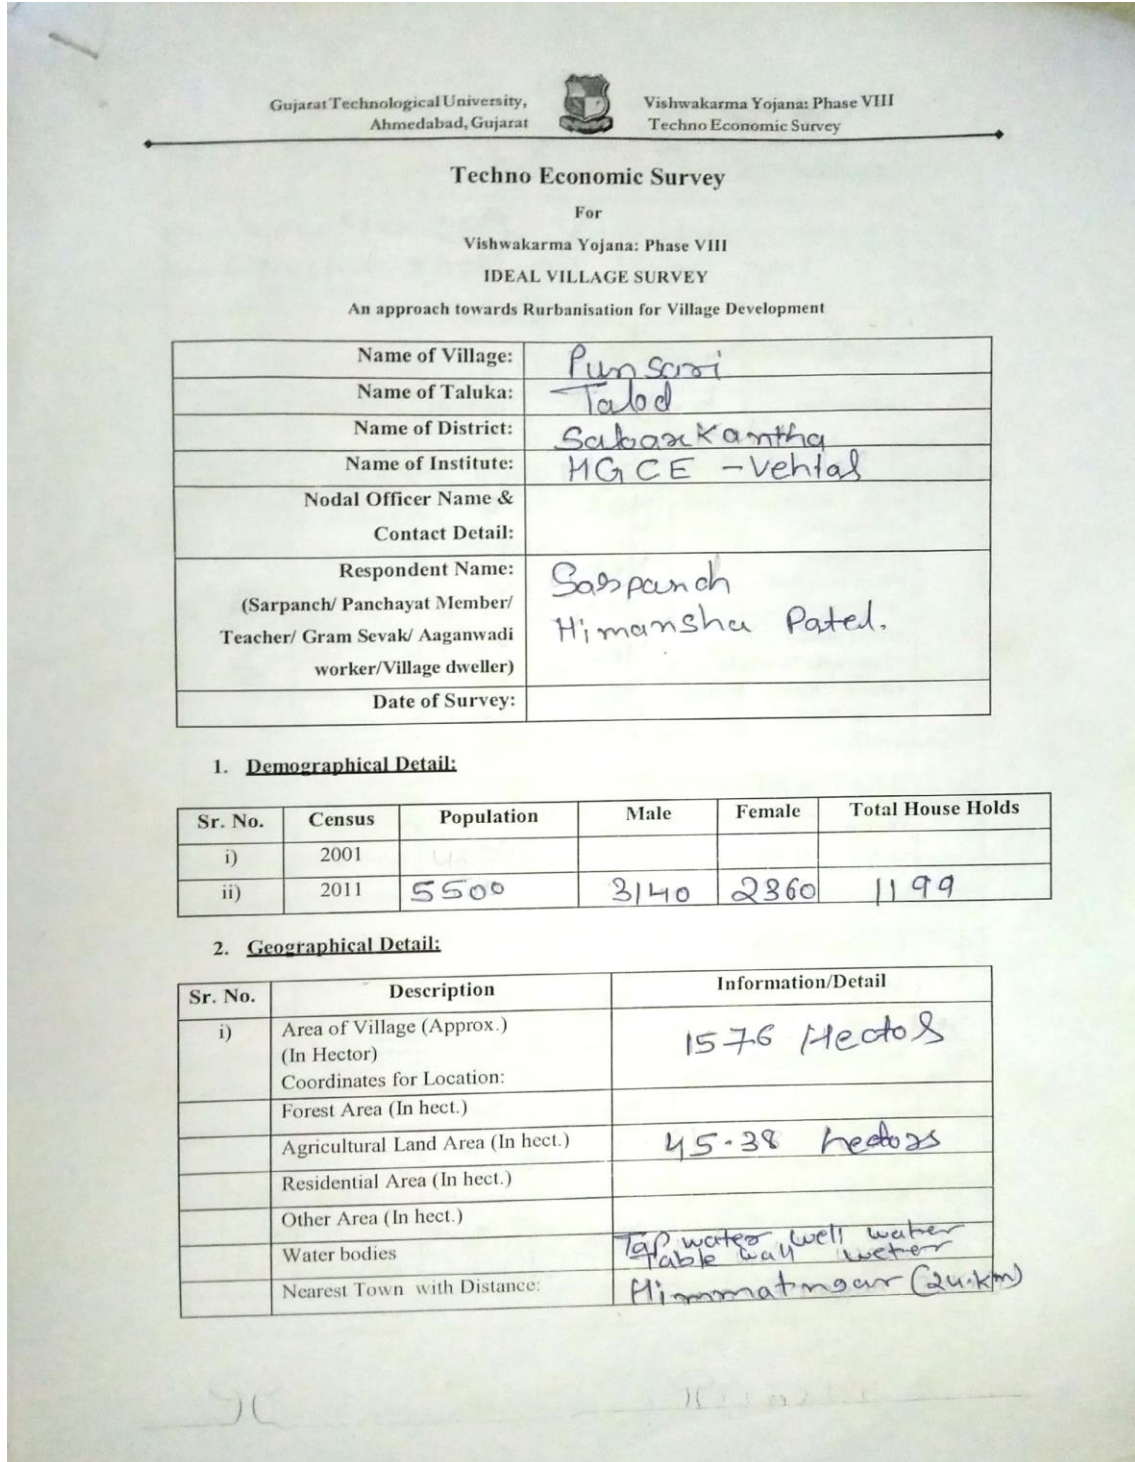 Gujarat Technological University,
Ahmedabad, Gujarat
Vishwakarma Yojana: Phase VIII
Techno Economic Survey
Techno Economic Survey
For
Vishwakarma Yojana: Phase VIII
IDEAL VILLAGE SURVEY
An approach towards Rurbanisation for Village Development
Name of Village: Punsari
Name of Taluka: Talod
Name of District: Sabarkantha
Name of Institute: HGCE - Vehlal
Nodal Officer Name &
Contact Detail:
Respondent Name: Sarpanch
(Sarpanch/ Panchayat Member/ Himanshu Patel.
Teacher/ Gram Sevak/ Aaganwadi
worker/Village dweller)
Date of Survey:
1. Demographical Detail:
Sr. No. Census Population Male Female Total House Holds
i) 2001
ii) 2011 5500 3140 2360 1199
2. Geographical Detail:
Sr. No. Description Information/Detail
i) Area of Village (Approx.) 1576 Hectors
(In Hector)
Coordinates for Location:
Forest Area (In hect.)
Agricultural Land Area (In hect.) 45.38 hectors
Residential Area (In hect.)
Other Area (In hect.)
Water bodies Tap water, well water
Table wall weter
Nearest Town with Distance: Himmatngar (24.km)